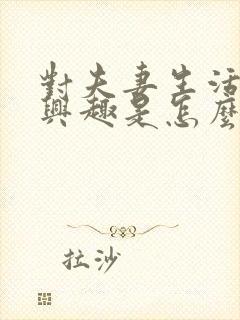 對夫妻生活
興趣是怎麼
拉沙